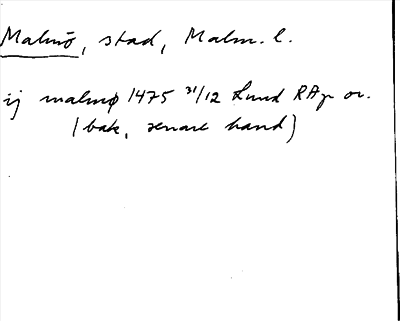 Malmö, stad, Malm. l.
ij malmø 1475 31/12 Lund RAp or.
(bak, senare hand)